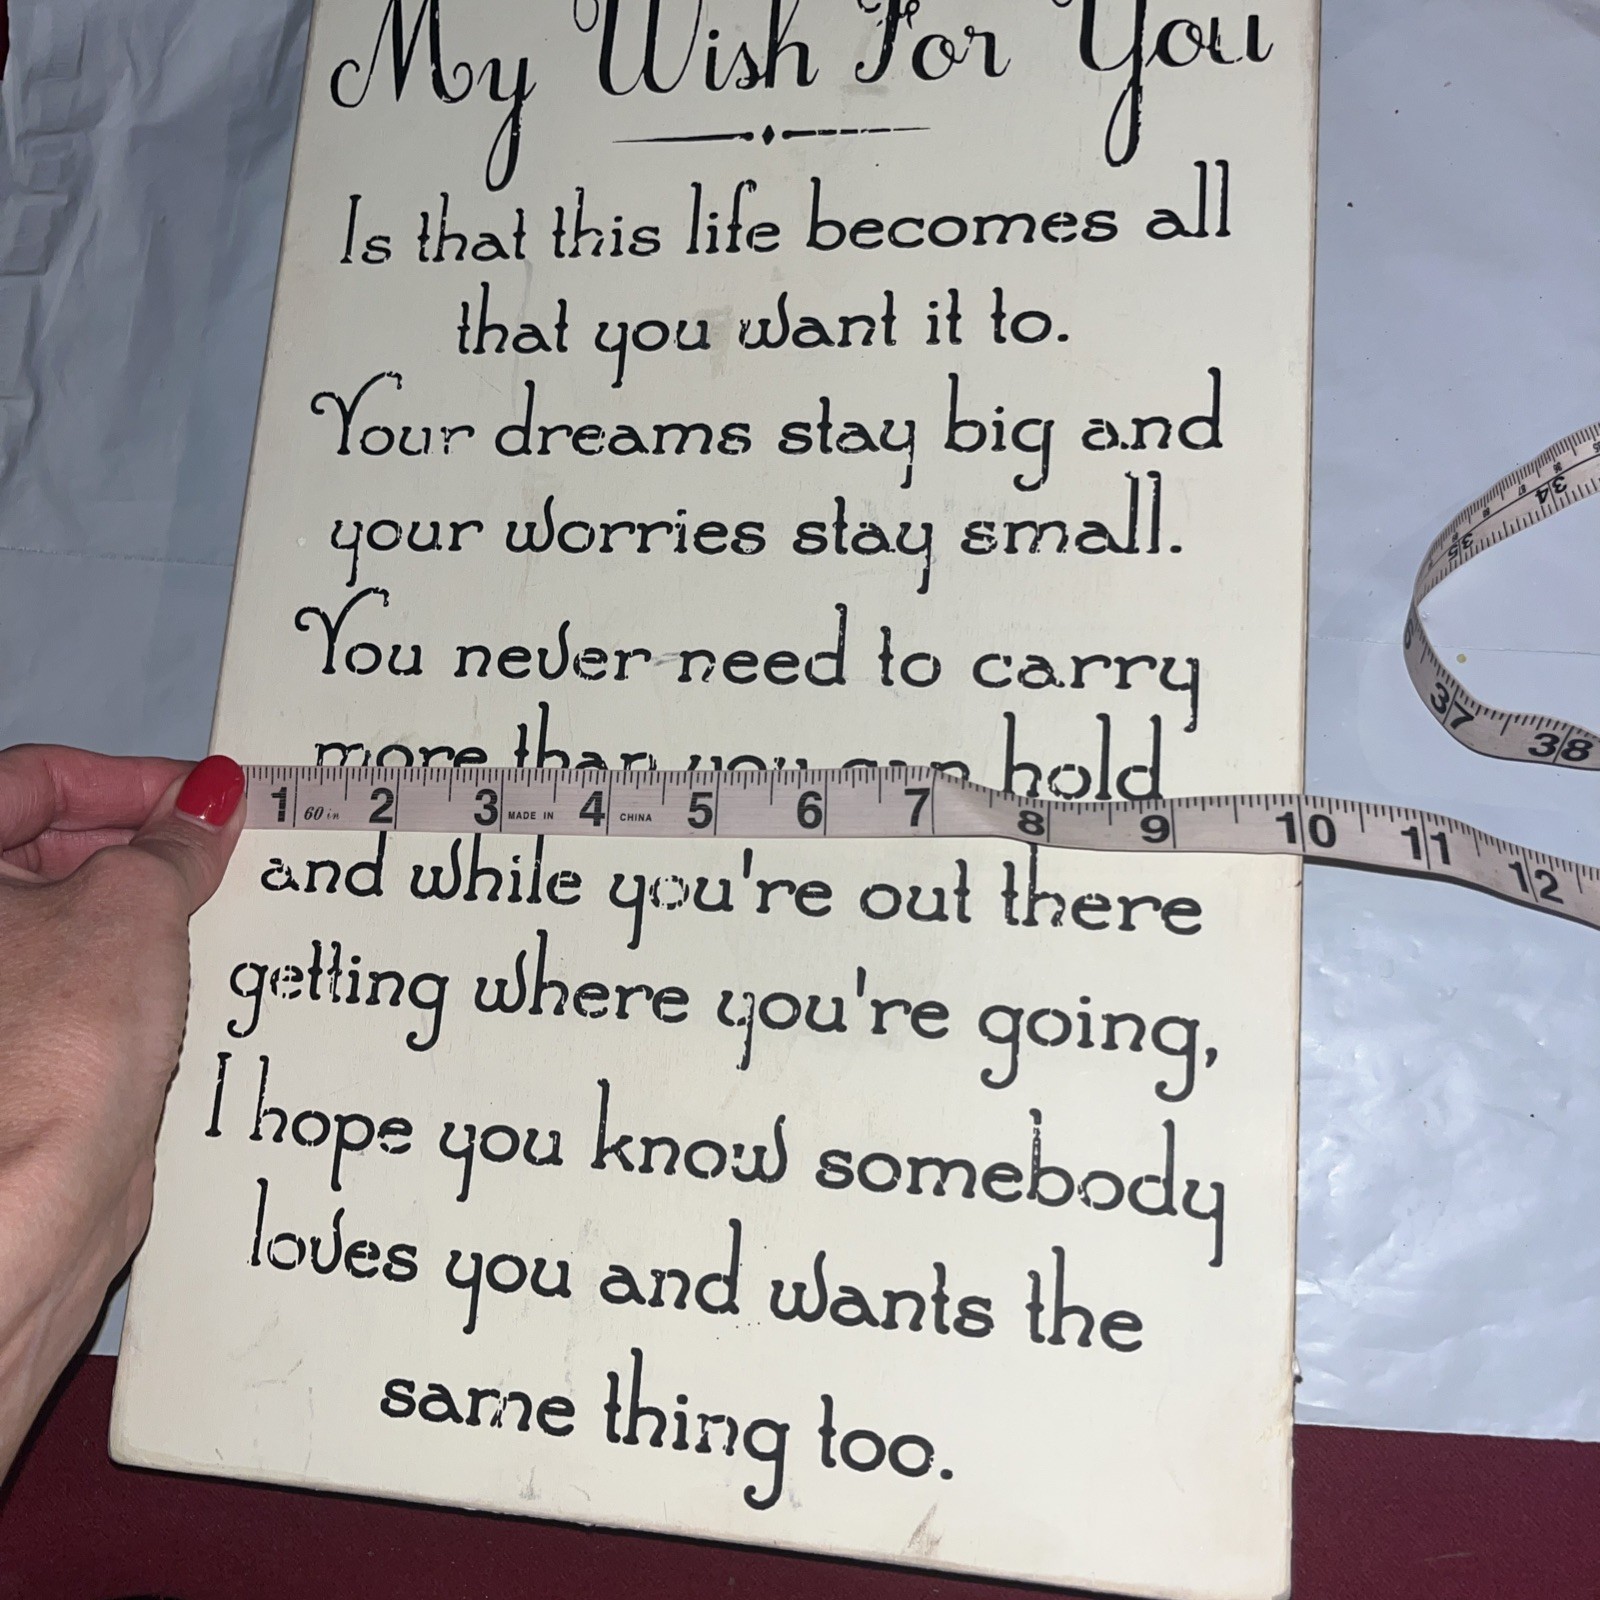 My Wish For You
Is that this life becomes all
that you want it to.
Your dreams stay big and
your worries stay small.
You never need to carry
more than you can hold
1 60 in 2 3 MADE IN 4 CHINA 5 6 7 8 9 10 11 12
34
35
37 38
and while you're out there
getting where you're going,
I hope you know somebody
loves you and wants the
same thing too.